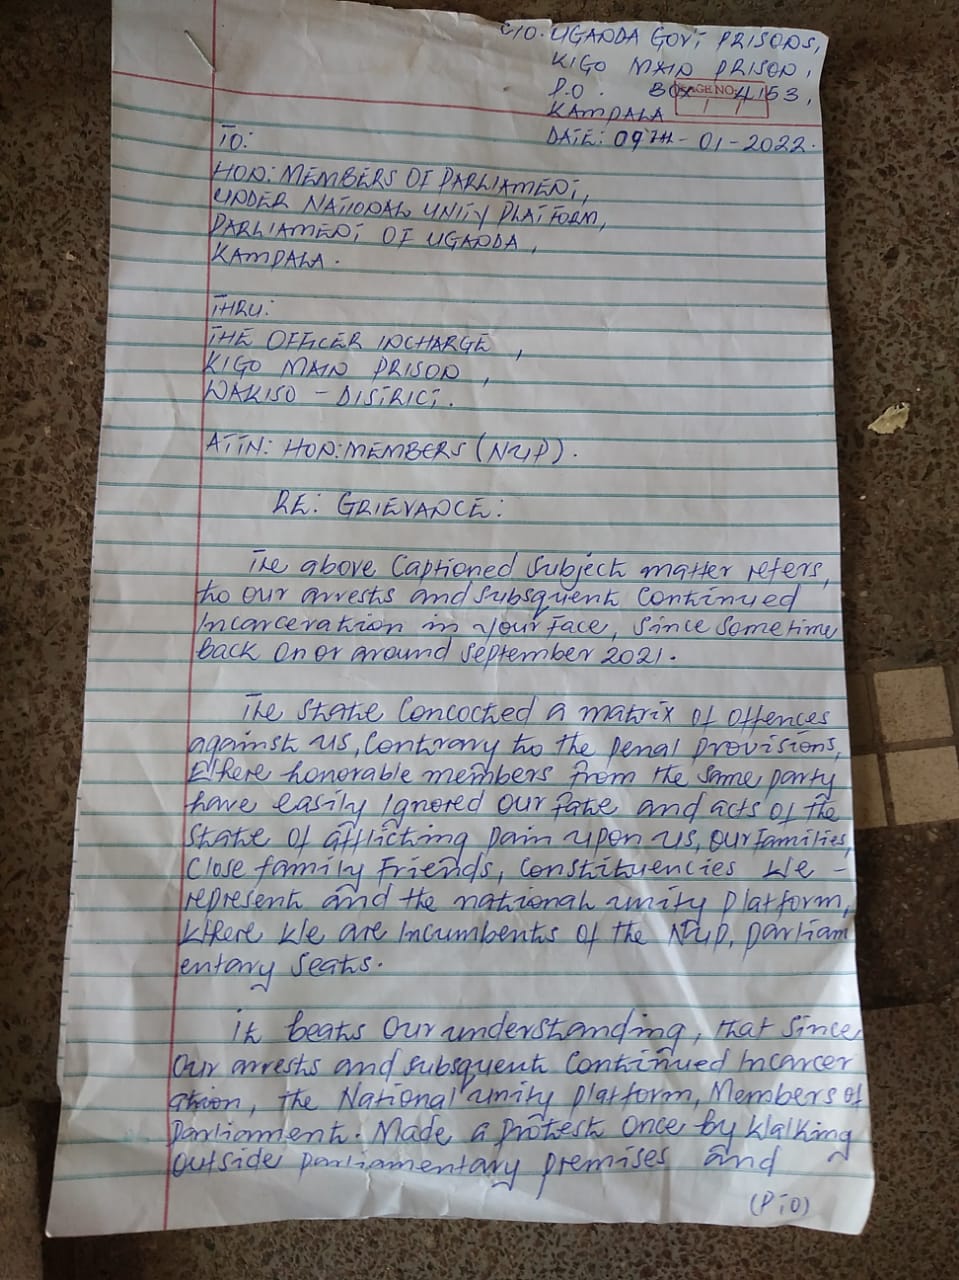 C/O. UGANDA GOV'T PRISONS,
KIGO MAIN PRISON,
P.O. BOX 4153,
PAGE NO: 1
KAMPALA
DATE: 09TH - 01 - 2022.
TO:
HON: MEMBERS OF PARLIAMENT,
UNDER NATIONAL UNITY PLATFORM,
PARLIAMENT OF UGANDA,
KAMPALA.
THRU:
THE OFFICER INCHARGE,
KIGO MAIN PRISON,
WAKISO - DISTRICT.
ATTN: HON: MEMBERS (NUP).
RE: GRIEVANCE:
The above Captioned Subject matter refers,
to our arrests and subsquent Continued
Incarceration in your face, Since Sometime
back on or around September 2021.
The State Concocted a matrix of offences
against us, Contrary to the penal provisions,
Where honorable members from the same party
have easily Ignored our fate and acts of the
State of afflicting pain upon us, our families,
Close family Friends, Constituencies We -
represent and the national unity platform,
Where We are Incumbents of the NUP, parliam
entary Seats.
It beats Our understanding, that since
Our arrests and subsquent Continued Incarcer
ation, the National unity platform, Members of
Parliament. Made a protest once by Walking
outside parliamentary premises and
(P.T.O)